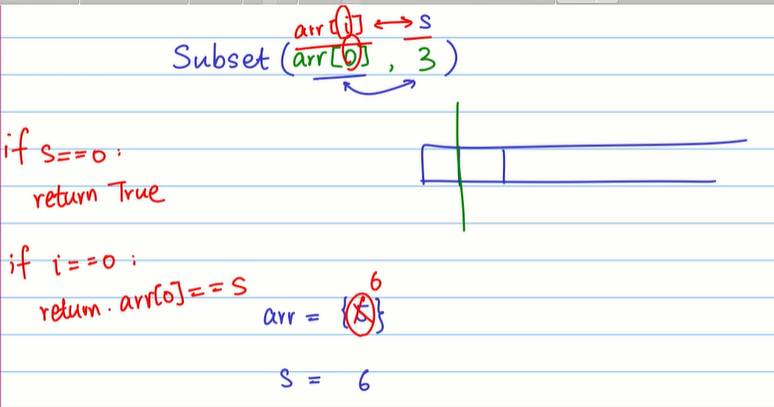 arr[i] ↔ s
Subset (arr[0], 3)
if s==0:
return True
if i==0:
return. arr[0]==S
6
arr = { }
S = 6